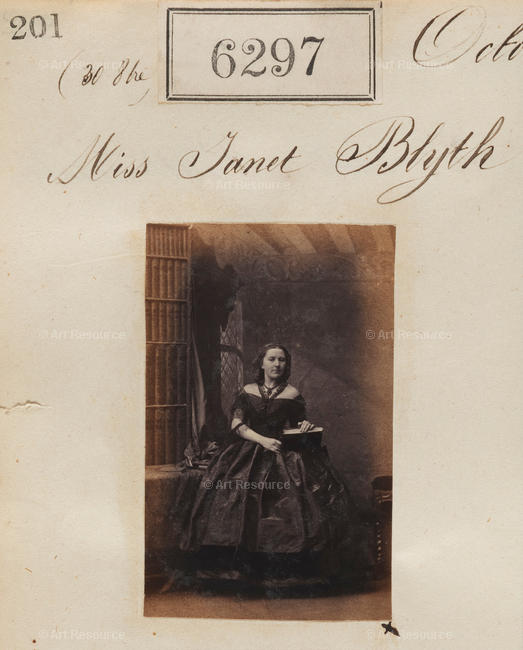 201
6297
Miss Janet Blyth
© Art Resource
© Art Resource
© Art Resource
© Art Resource
© Art Resource
© Art Resource
© Art Resource
© Art Resource
© Art Resource